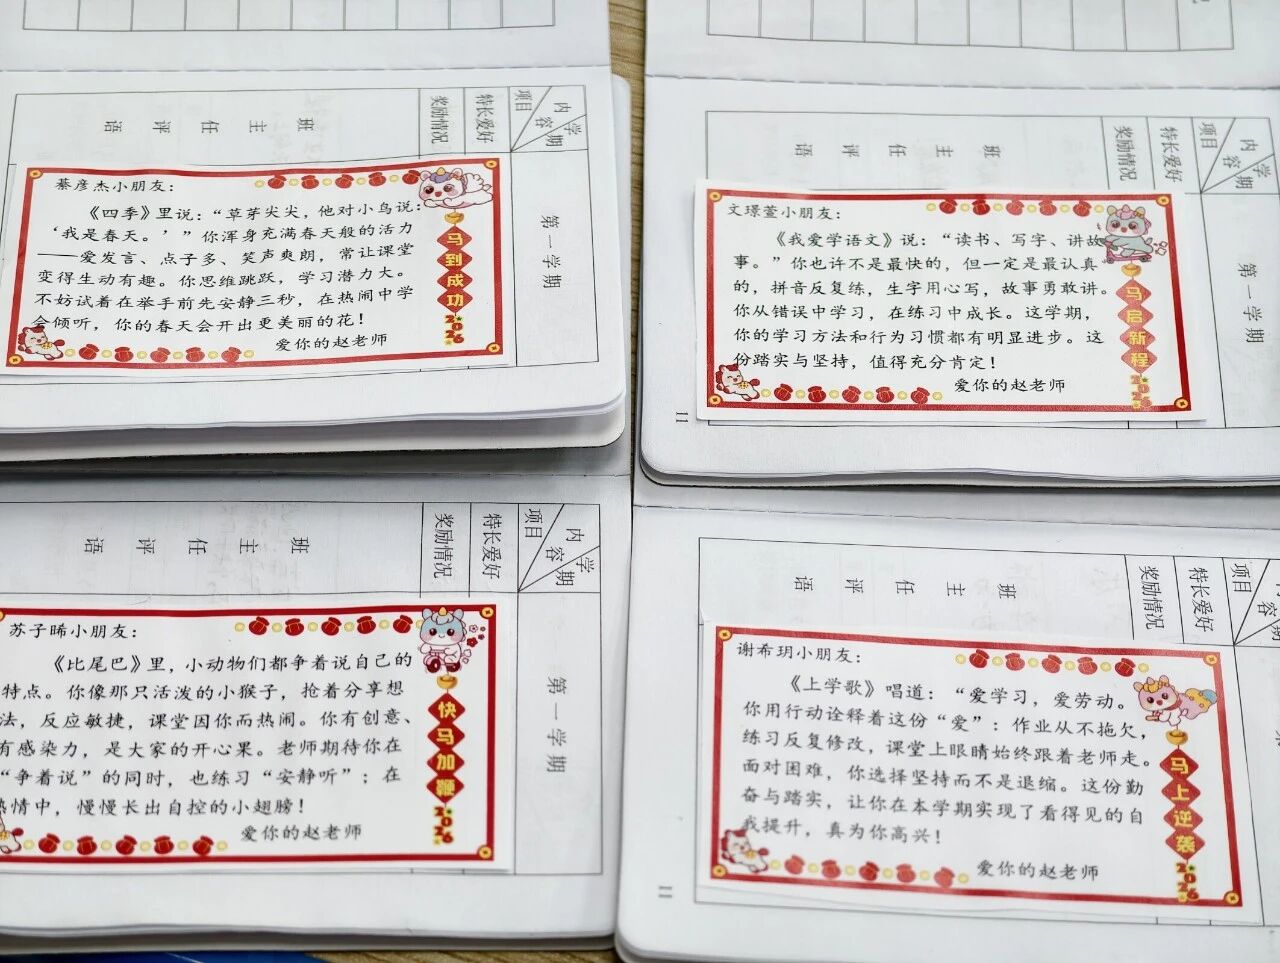 语 评 任 主 班
奖励情况
特长爱好
项目
内容
学期
第一学期
綦彦杰小朋友：
《四季》里说：“草芽尖尖，他对小鸟说：
‘我是春天。’”你浑身充满春天般的活力
——爱发言、点子多、笑声爽朗，常让课堂
变得生动有趣。你思维跳跃，学习潜力大。
不妨试着在举手前先安静三秒，在热闹中学
会倾听，你的春天会开出更美丽的花！
爱你的赵老师
马到成功
2026
语 评 任 主 班
奖励情况
特长爱好
项目
内容
学期
第一学期
文璟萱小朋友：
《我爱学语文》说：“读书、写字、讲故
事。”你也许不是最快的，但一定是最认真
的，拼音反复练，生字用心写，故事勇敢讲。
你从错误中学习，在练习中成长。这学期，
你的学习方法和行为习惯都有明显进步。这
份踏实与坚持，值得充分肯定！
爱你的赵老师
马启新程
2026
11
语 评 任 主 班
奖励情况
特长爱好
项目
内容
学期
第一学期
苏子晞小朋友：
《比尾巴》里，小动物们都争着说自己的
特点。你像那只活泼的小猴子，抢着分享想
法，反应敏捷，课堂因你而热闹。你有创意、
有感染力，是大家的开心果。老师期待你在
“争着说”的同时，也练习“安静听”；在
热情中，慢慢长出自控的小翅膀！
爱你的赵老师
快马加鞭
2026
语 评 任 主 班
奖励情况
特长爱好
项目
内容
学期
谢希玥小朋友：
《上学歌》唱道：“爱学习，爱劳动。
你用行动诠释着这份“爱”：作业从不拖欠，
练习反复修改，课堂上眼睛始终跟着老师走。
面对困难，你选择坚持而不是退缩。这份勤
奋与踏实，让你在本学期实现了看得见的自
我提升，真为你高兴！
爱你的赵老师
马上逆袭
2026
11